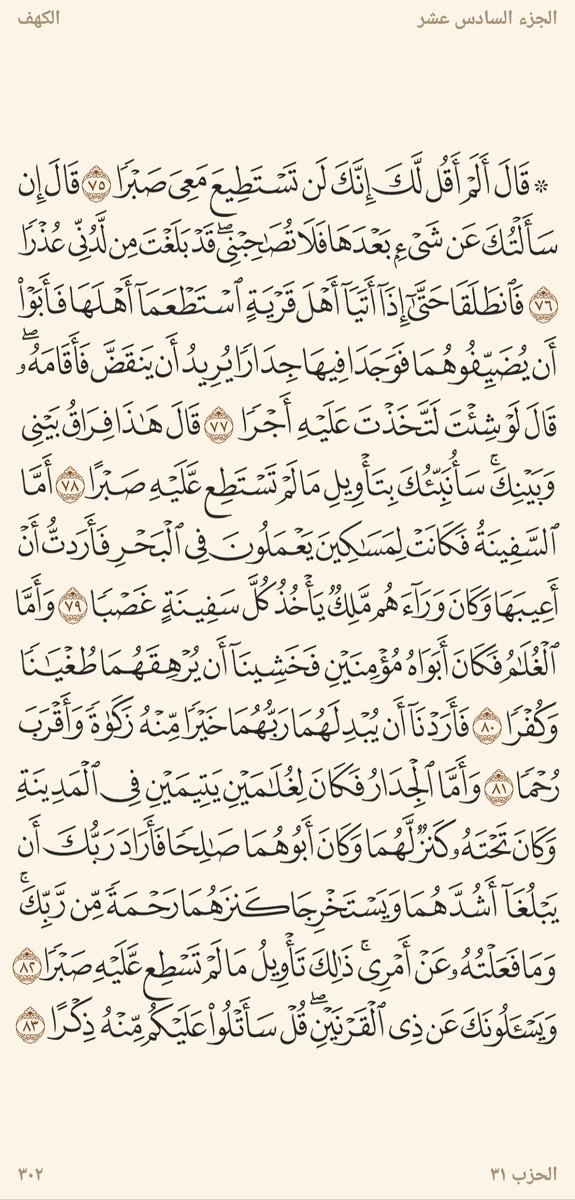 الجزء السادس عشر
الكهف
۞ قَالَ أَلَمْ أَقُل لَّكَ إِنَّكَ لَن تَسْتَطِيعَ مَعِىَ صَبْرًا ٧٥ قَالَ إِن
سَأَلْتُكَ عَن شَىْءٍۭ بَعْدَهَا فَلَا تُصَٰحِبْنِى ۖ قَدْ بَلَغْتَ مِن لَّدُنِّى عُذْرًا
٧٦ فَٱنطَلَقَا حَتَّىٰٓ إِذَآ أَتَيَآ أَهْلَ قَرْيَةٍ ٱسْتَطْعَمَآ أَهْلَهَا فَأَبَوْا۟
أَن يُضَيِّفُوهُمَا فَوَجَدَا فِيهَا جِدَارًا يُرِيدُ أَن يَنقَضَّ فَأَقَامَهُۥ ۖ
قَالَ لَوْ شِئْتَ لَتَّخَذْتَ عَلَيْهِ أَجْرًا ٧٧ قَالَ هَٰذَا فِرَاقُ بَيْنِى
وَبَيْنِكَ ۚ سَأُنَبِّئُكَ بِتَأْوِيلِ مَا لَمْ تَسْتَطِع عَّلَيْهِ صَبْرًا ٧٨ أَمَّا
ٱلسَّفِينَةُ فَكَانَتْ لِمَسَٰكِينَ يَعْمَلُونَ فِى ٱلْبَحْرِ فَأَرَدتُّ أَنْ
أَعِيبَهَا وَكَانَ وَرَآءَهُم مَّلِكٌ يَأْخُذُ كُلَّ سَفِينَةٍ غَصْبًا ٧٩ وَأَمَّا
ٱلْغُلَٰمُ فَكَانَ أَبَوَاهُ مُؤْمِنَيْنِ فَخَشِينَآ أَن يُرْهِقَهُمَا طُغْيَٰنًا
وَكُفْرًا ٨٠ فَأَرَدْنَآ أَن يُبْدِلَهُمَا رَبُّهُمَا خَيْرًا مِّنْهُ زَكَوٰةً وَأَقْرَبَ
رُحْمًا ٨١ وَأَمَّا ٱلْجِدَارُ فَكَانَ لِغُلَٰمَيْنِ يَتِيمَيْنِ فِى ٱلْمَدِينَةِ
وَكَانَ تَحْتَهُۥ كَنزٌ لَّهُمَا وَكَانَ أَبُوهُمَا صَٰلِحًا فَأَرَادَ رَبُّكَ أَن
يَبْلُغَآ أَشُدَّهُمَا وَيَسْتَخْرِجَا كَنزَهُمَا رَحْمَةً مِّن رَّبِّكَ ۚ
وَمَا فَعَلْتُهُۥ عَنْ أَمْرِى ۚ ذَٰلِكَ تَأْوِيلُ مَا لَمْ تَسْطِع عَّلَيْهِ صَبْرًا ٨٢
وَيَسْـَٔلُونَكَ عَن ذِى ٱلْقَرْنَيْنِ ۖ قُلْ سَأَتْلُوا۟ عَلَيْكُم مِّنْهُ ذِكْرًا ٨٣
الحزب ٣١
٣٠٢